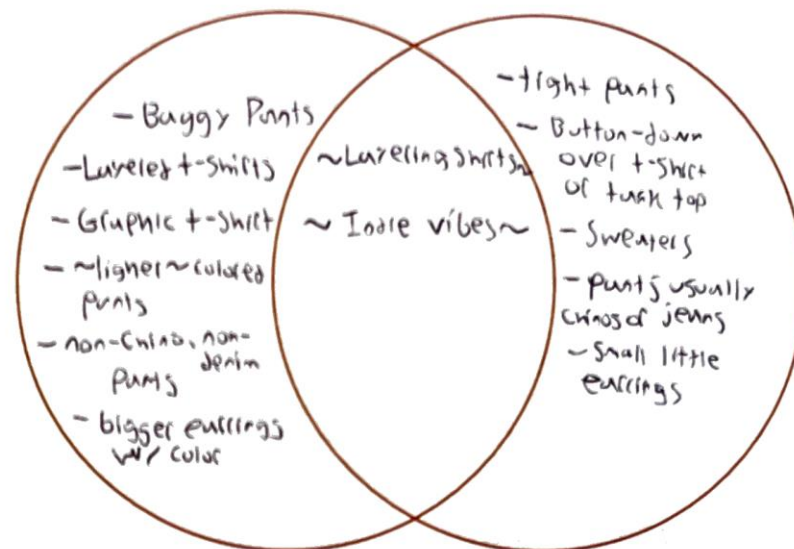 - Baggy Pants
- Layered t-shirts
- Graphic t-shirt
- ~ligher~colored
pants
- non-chino, non-
denim
pants
- bigger earrings
w/ color
~Layering shirts~
~ Indie vibes ~
- tight pants
- Button-down
over t-shirt
or tank top
- Sweaters
- pants usually
chinos or jeans
- Small little
earrings